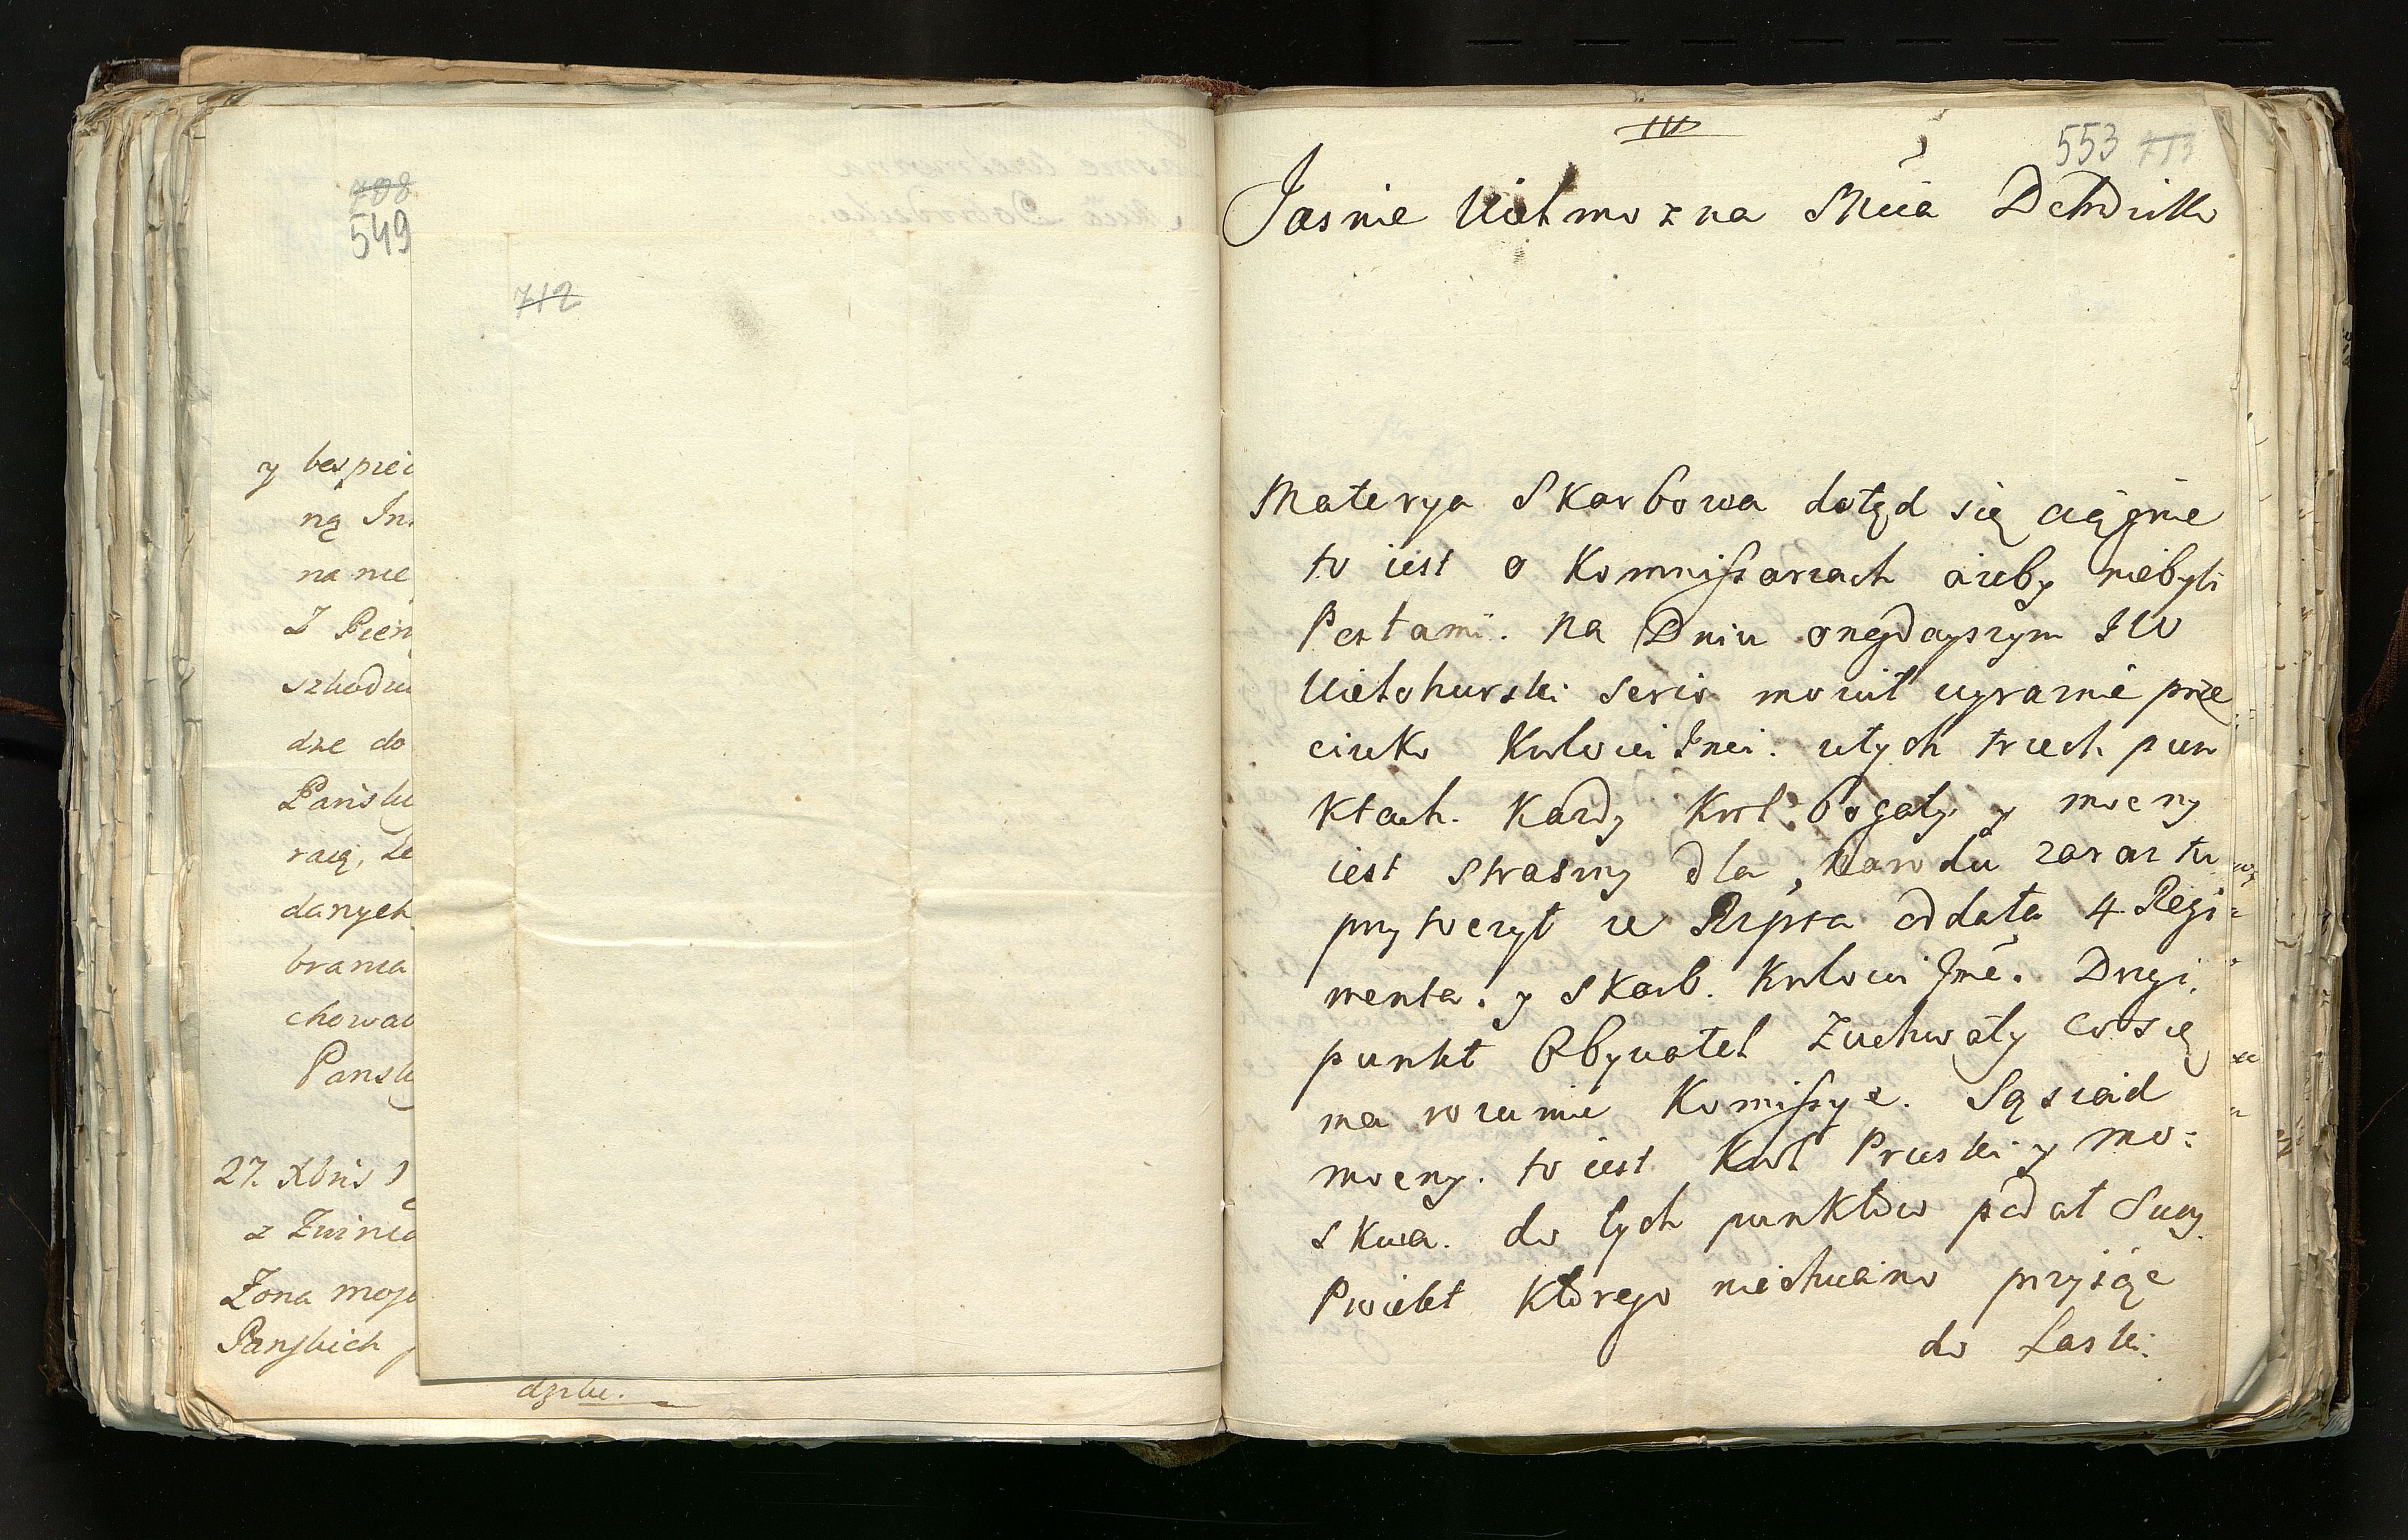 708
549
y bespiec
ną In
na nie
I Pien
szkodu
dze do
Pańsk
raią, Ze
danych
brania
chowa
Pansk
27. Xbris
z Zwin
Zona moja
Panskich
dgzlu.
712
553 713
Jasnie Wielmozna Mcia Dobrdziko
Materya Skarbowa dotąd się ciągnie
to iest o Kommissarzach azeby niebyli
Posłami. Na Dniu onegdayszym JW
Wielohurski serio mowił wyraznie prze
ciwko Krolowi Jmci. wtych trzech pun
ktach. Kazdy Krol bogaty y mocny
iest straszny dla Narodu zaraz tu
przytoczył ze Rzpta oddała 4. Regi-
menta. y Skarb. Krolowi Jmc. Drugi.
punkt Obywatel Zuchwały co się
ma rozumie Komissye. Sąsiad
mocny. to iest Krol Pruski y Mo:
skwa. do tych punktow podał Swoy.
Proiekt Ktorego niechciano przyiąc
do Laski.